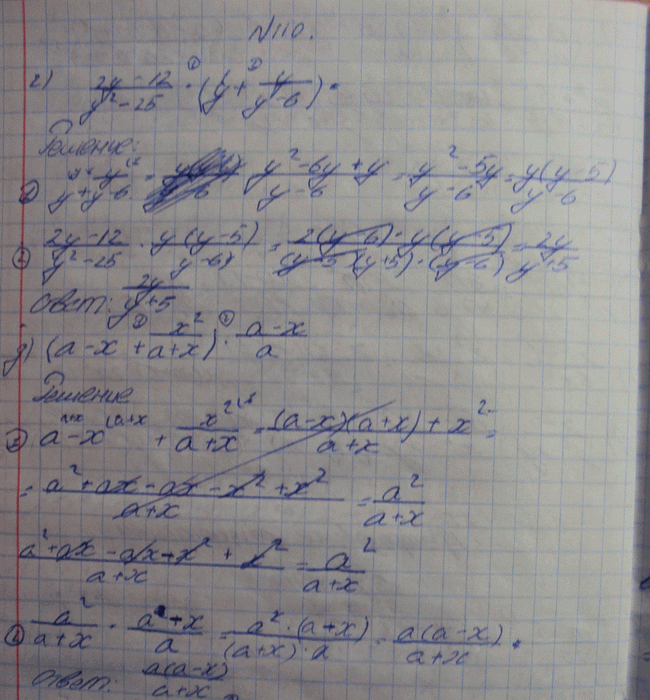 №110.
г) (2y-12)/(y²-25) · (y + y/(y-6)).
Решение:
① y + y/(y-6) = (y²-6y+y)/(y-6) = (y²-5y)/(y-6) = y(y-5)/(y-6)
② (2y-12)/(y²-25) · y(y-5)/(y-6) = 2(y-6)·y(y-5)/((y-5)(y+5)·(y-6)) = 2y/(y+5)
Ответ: 2y/(y+5)
д) (a-x + x²/(a+x)) · (a-x)/a
Решение
① a-x + x²/(a+x) = ((a-x)(a+x)+x²)/(a+x) =
= (a²+ax-ax-x²+x²)/(a+x) = a²/(a+x)
(a²+ax-ax-x²+x²)/(a+x) = a²/(a+x)
② a²/(a+x) · (a+x)/a = a²·(a+x)/((a+x)·a) = a(a-x)/(a+x).
Ответ: a(a-x)/(a+x)